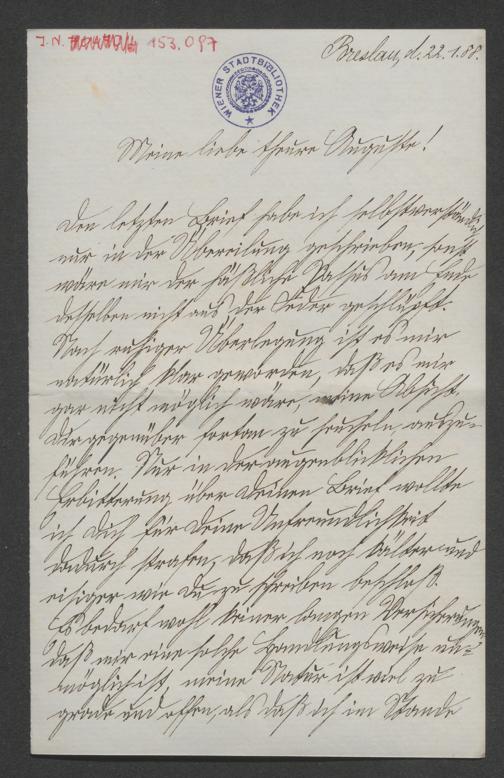 J. N. 153.097
WIENER STADTBIBLIOTHEK
Breslau, d. 22.1.88.
Meine liebe theure Auguste!
Den letzten Brief habe ich selbstverständlich
nur in der Übereilung geschrieben, sonst
wäre mir der häßliche Passus am Ende
desselben nicht aus der Feder geschlüpft.
Nach ruhiger Überlegung ist es mir
natürlich klar geworden, daß es mir
gar nicht möglich wäre, meine Absicht,
Dir gegenüber fortan zu heucheln, auszu-
führen. Nur in der augenblicklichen
Erbitterung über Deinen Brief wollte
ich Dich für Deine Unfreundlichkeit
dadurch strafen, daß ich noch kälter und
eisiger wie Du zu schreiben beschloß.
Es bedarf wohl keiner langen Versicherungen
daß mir eine solche Handlungsweise un-
möglich ist, meine Natur ist viel zu
grade und offen, als daß ich im Stande